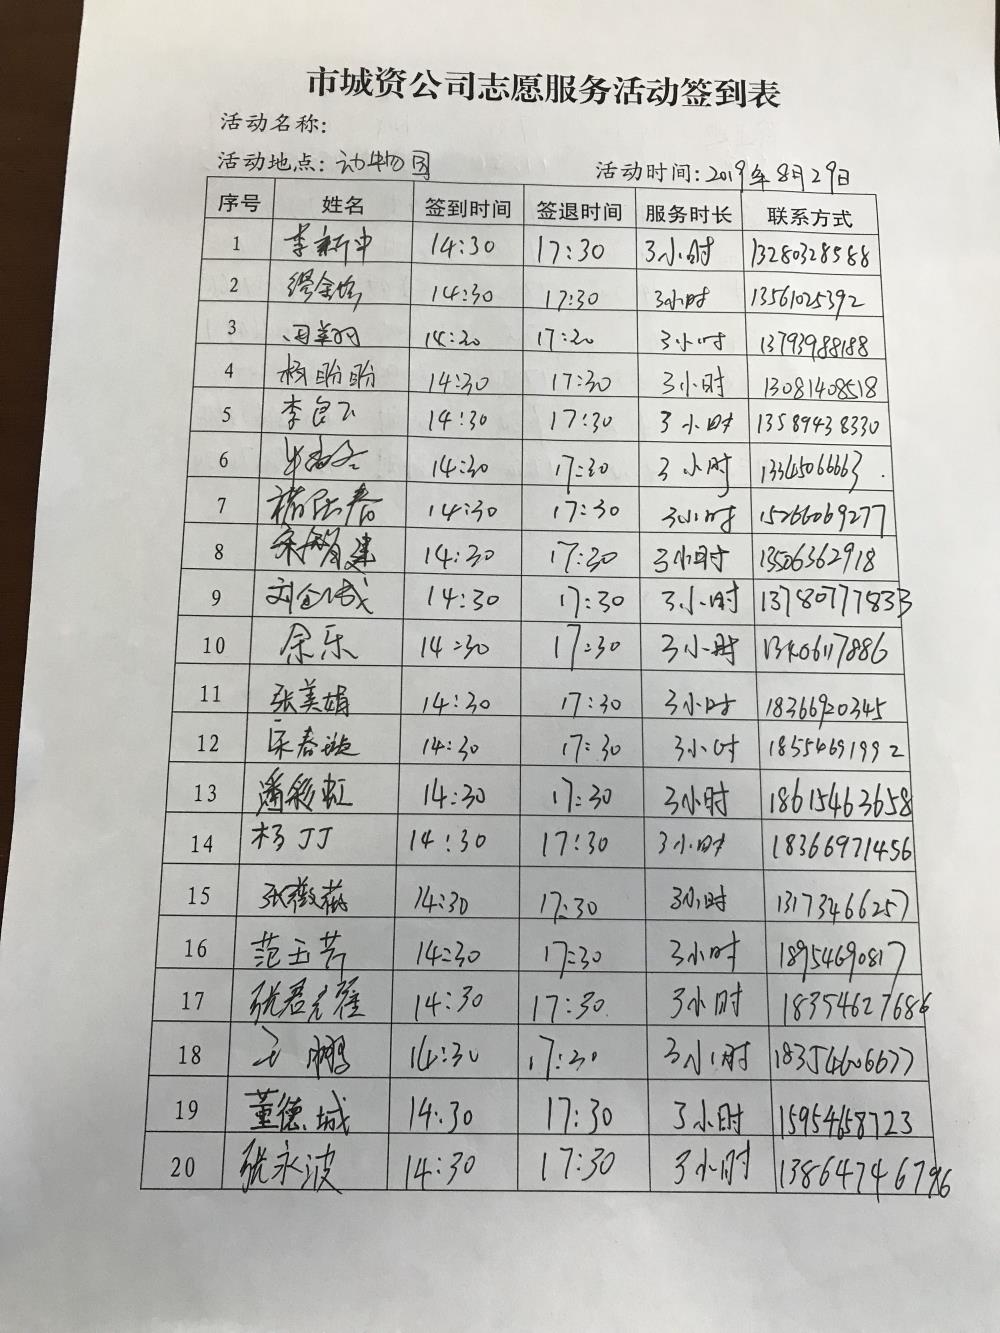 市城资公司志愿服务活动签到表
活动名称:
活动地点: 动物园 活动时间: 2019年8月29日
序号 姓名 签到时间 签退时间 服务时长 联系方式
1 李新中 14:30 17:30 3小时 13280328588
2 14:30 17:30 3小时 13561025392
3 14:30 17:30 3小时 13793988188
4 杨盼盼 14:30 17:30 3小时 13081408518
5 李良飞 14:30 17:30 3小时 13589438330
6 14:30 17:30 3小时 13345066663
7 14:30 17:30 3小时 15266069277
8 14:30 17:30 3小时 13506362918
9 14:30 17:30 3小时 13780777833
10 余乐 14:30 17:30 3小时 13406117886
11 张美娟 14:30 17:30 3小时 18366920345
12 14:30 17:30 3小时 18554691992
13 潘彩虹 14:30 17:30 3小时 18615463658
14 杨丁丁 14:30 17:30 3小时 18366971456
15 张薇薇 14:30 17:30 3小时 13173466257
16 范玉芹 14:30 17:30 3小时 18954690817
17 14:30 17:30 3小时 18354627686
18 王鹏 14:30 17:30 3小时 18354606677
19 董德城 14:30 17:30 3小时 15954658723
20 张永波 14:30 17:30 3小时 13864746796